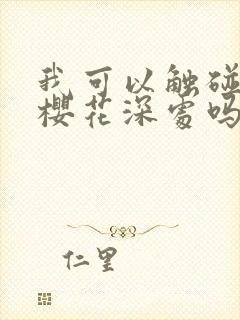 我可以触碰
樱花深处吗
仁里